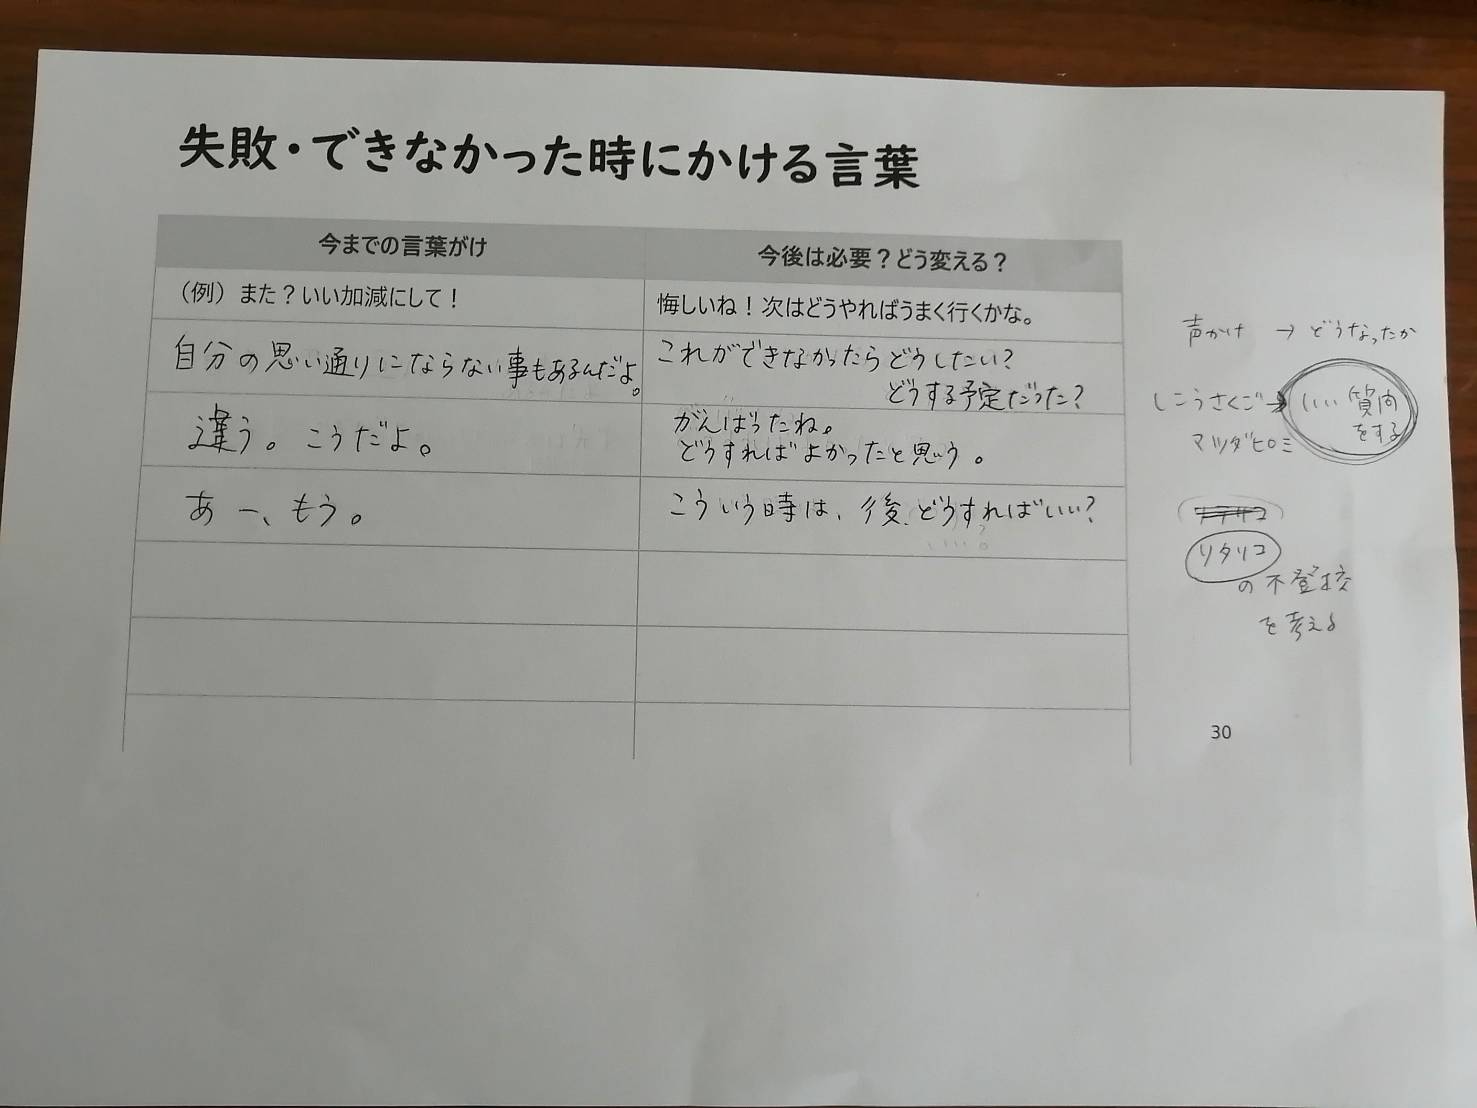 失敗・できなかった時にかける言葉
今までの言葉がけ
今後は必要？どう変える？
（例）また？いい加減にして！
悔しいね！次はどうやればうまく行くかな。
自分の思い通りにならない事もあるんだよ。
これができなかったらどうしたい？
どうする予定だった？
違う。こうだよ。
がんばったね。
どうすればよかったと思う。
あー、もう。
こういう時は、後、どうすればいい？
声かけ → どうなったか
しこうさくご→いい質問
をする
マツダヒロミ
リタリコ
の不登校
を考える
30